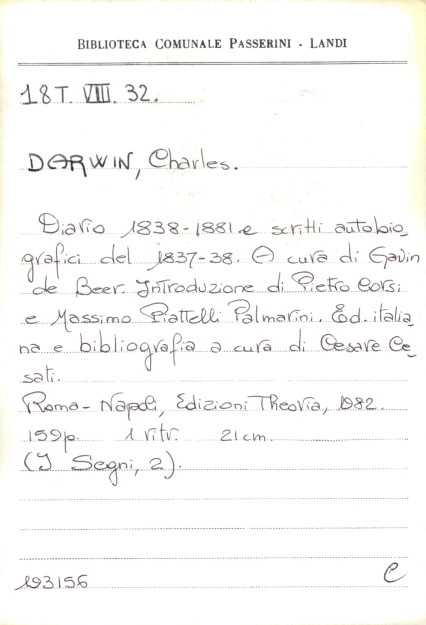 BIBLIOTECA COMUNALE PASSERINI - LANDI
18 T. VIII. 32.
DARWIN, Charles.
Diario 1838-1881 e scritti autobio_
grafici del 1837-38. A cura di Gavin
de Beer. Introduzione di Pietro Corsi
e Massimo Piattelli Palmarini. Ed. italia_
na e bibliografia a cura di Cesare Ce_
sati.
Roma - Napoli, Edizioni Theoria, 1982.
159 p. 1 ritr. 21 cm.
(I Segni, 2).
193156 C